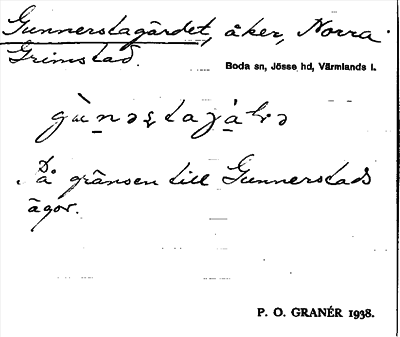 Gunnerstagärdet, åker, Norra
Grimstad.
Boda sn, Jösse hd, Värmlands l.
På gränsen till Gunnerstads
ägor.
P. O. GRANÉR 1938.